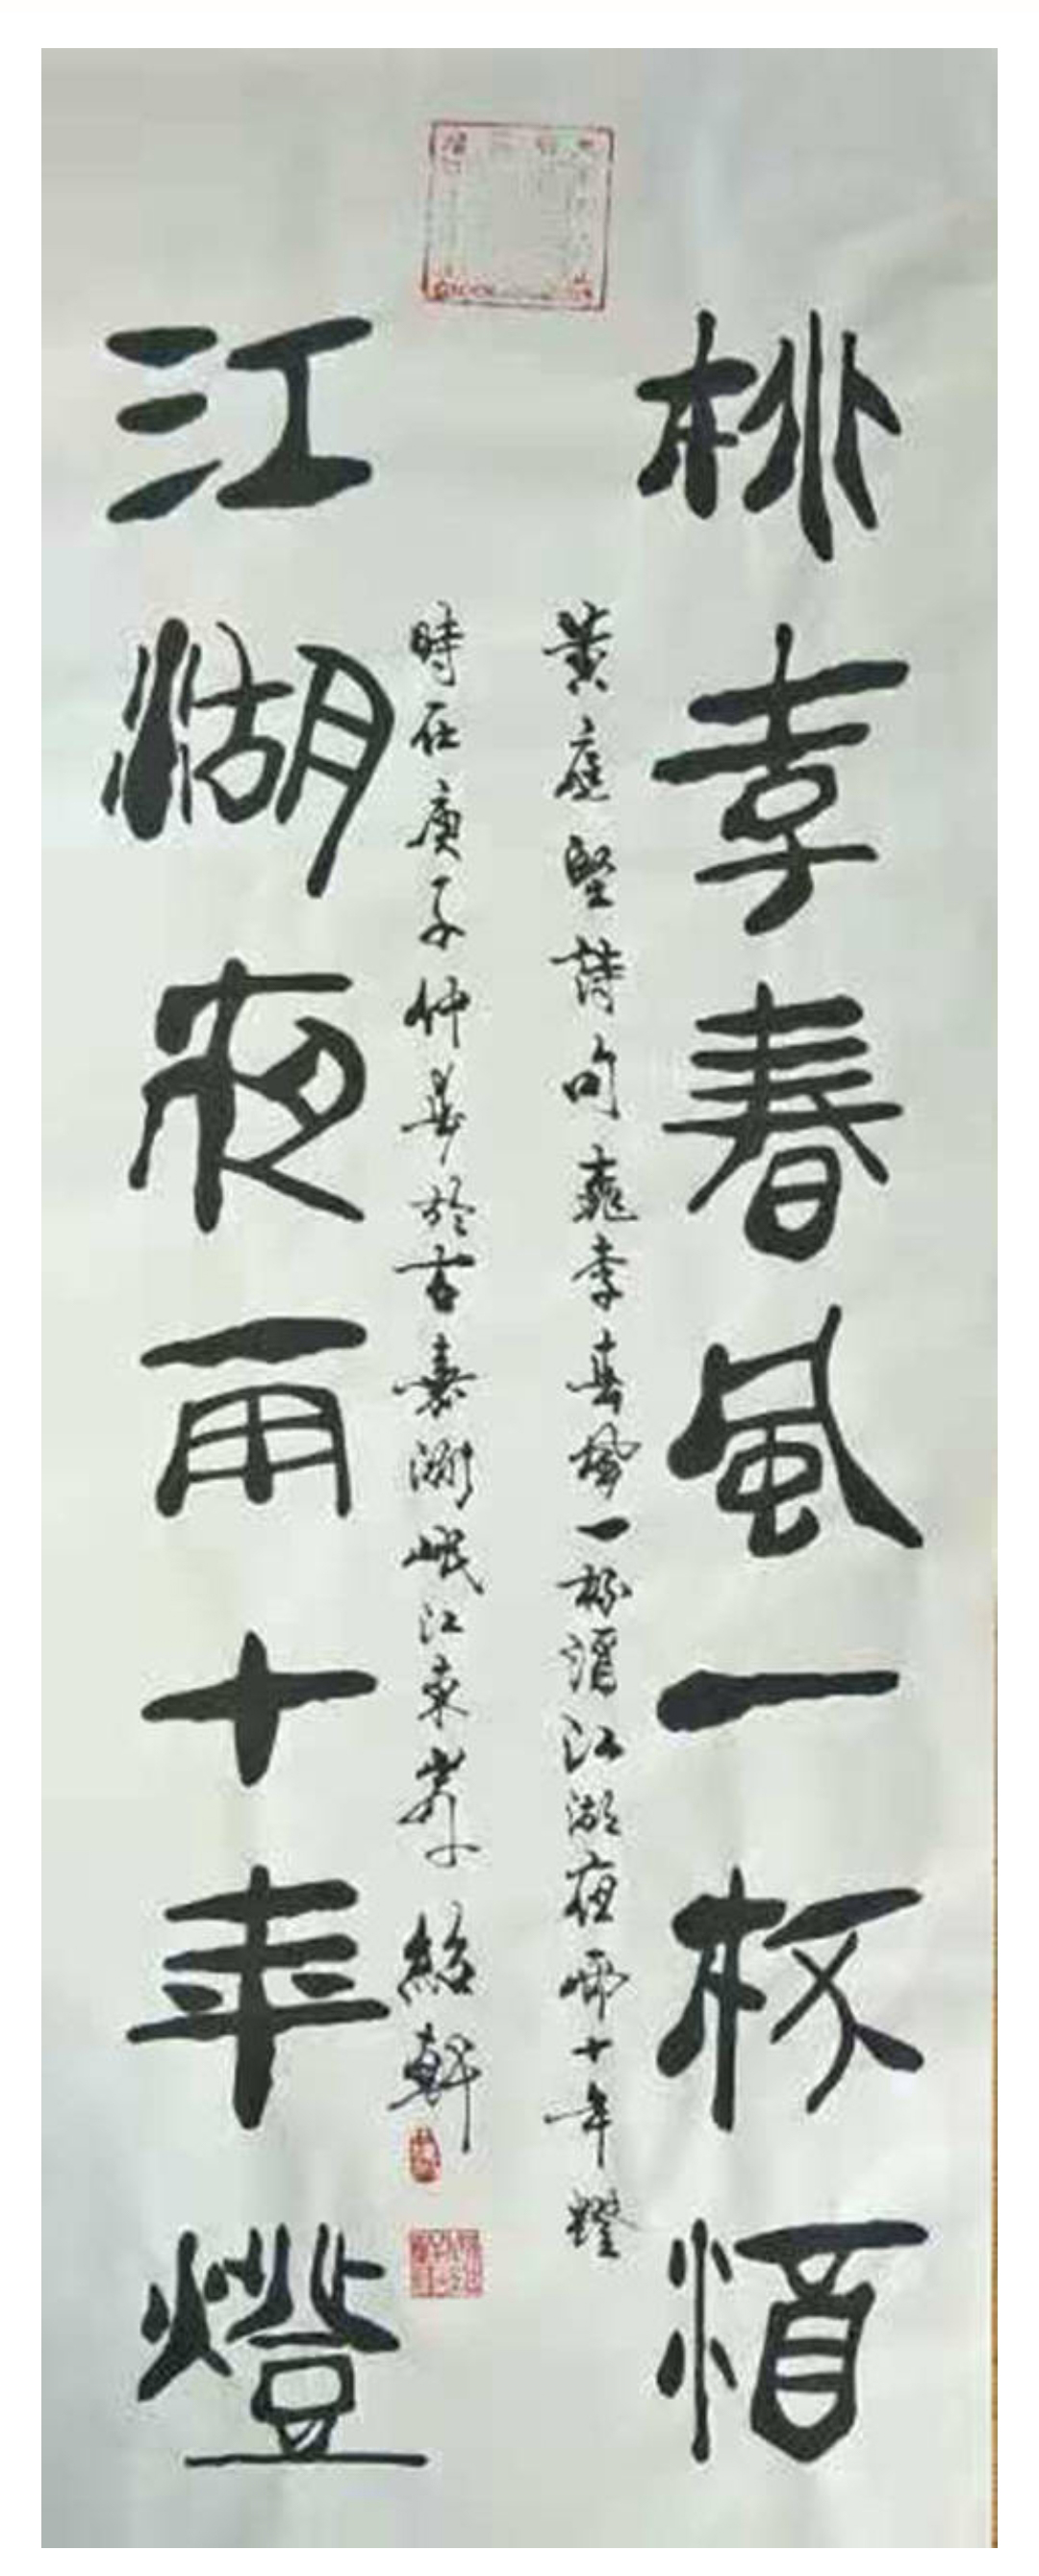 桃李春風一杯酒
黃庭堅詩句桃李春風一杯酒江湖夜雨十年燈
時在庚子仲春於古嘉州岷江東岸 紹軒
江湖夜雨十年燈